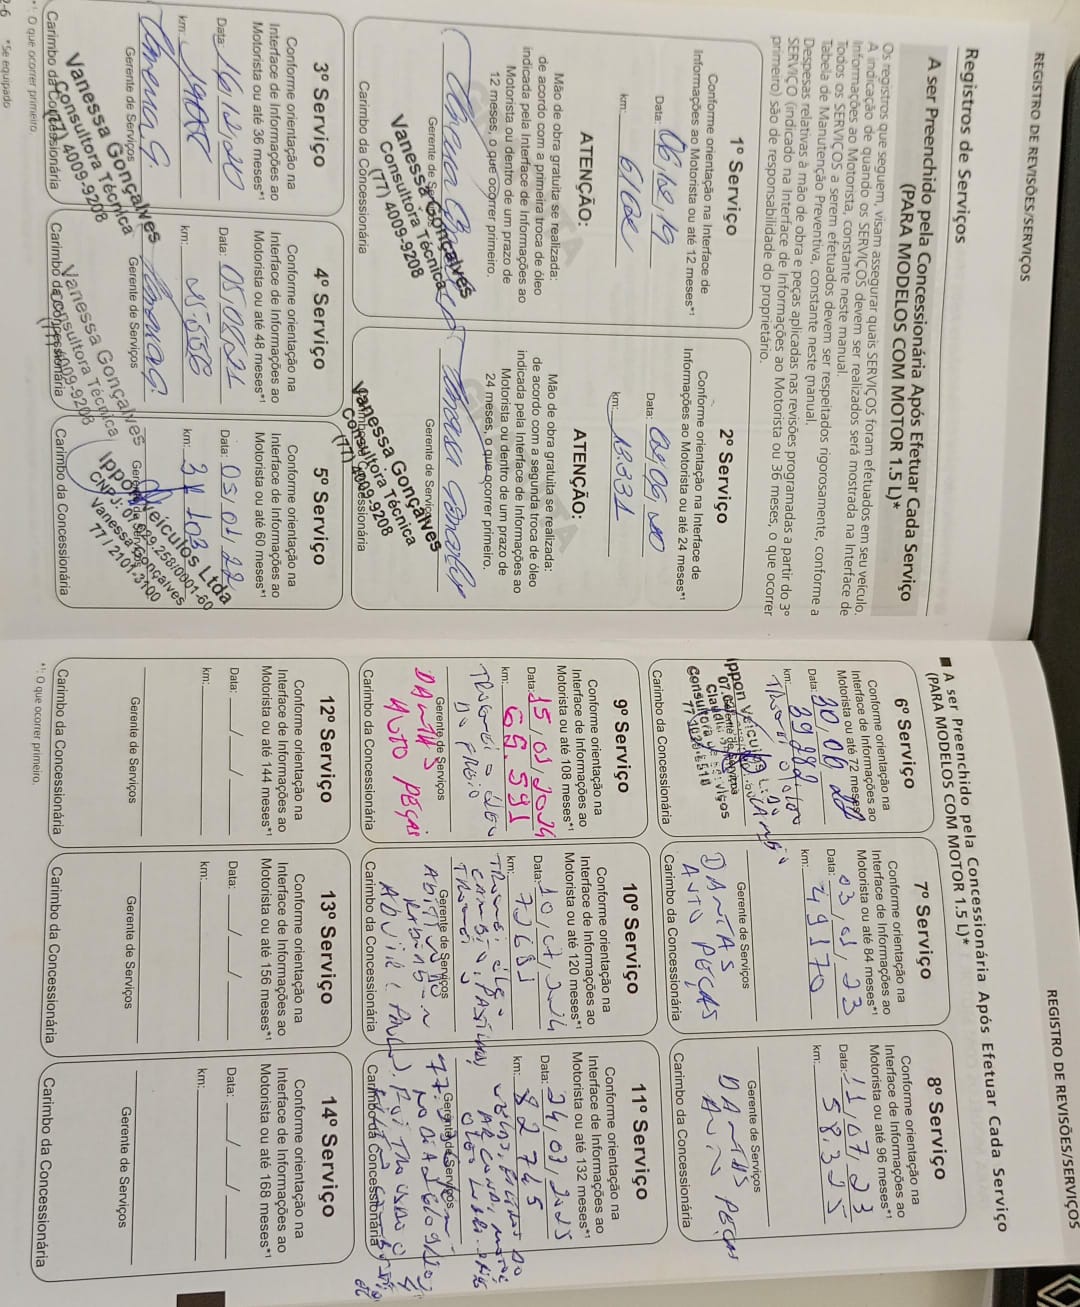 REGISTRO DE REVISÕES/SERVIÇOS
Registros de Serviços
A ser Preenchido pela Concessionária Após Efetuar Cada Serviço
(PARA MODELOS COM MOTOR 1.5 L)*
Os registros que seguem, visam assegurar quais SERVIÇOS foram efetuados em seu veículo.
A indicação de quando os SERVIÇOS devem ser realizados será mostrada na Interface de
Informações ao Motorista, constante neste manual.
Todos os SERVIÇOS a serem efetuados devem ser respeitados rigorosamente, conforme a
Tabela de Manutenção Preventiva, constante neste manual.
Despesas relativas à mão de obra e peças aplicadas nas revisões programadas a partir do 3º
SERVIÇO (indicado na Interface de Informações ao Motorista ou 36 meses, o que ocorrer
primeiro) são de responsabilidade do proprietário.
1º Serviço
Conforme orientação na Interface de
Informações ao Motorista ou até 12 meses*¹
Data: 06/12/19
km:
ATENÇÃO:
Mão de obra gratuita se realizada:
de acordo com a primeira troca de óleo
indicada pela Interface de Informações ao
Motorista ou dentro de um prazo de
12 meses, o que ocorrer primeiro.
Gerente de Serviços
Vanessa Gonçalves
Consultora Técnica
(77) 4009-9208
Carimbo da Concessionária
2º Serviço
Conforme orientação na Interface de
Informações ao Motorista ou até 24 meses*¹
Data:
km: 12.331
ATENÇÃO:
Mão de obra gratuita se realizada:
de acordo com a segunda troca de óleo
indicada pela Interface de Informações ao
Motorista ou dentro de um prazo de
24 meses, o que ocorrer primeiro.
Gerente de Serviços
Vanessa Gonçalves
Consultora Técnica
(77) 4009-9208
Carimbo da Concessionária
3º Serviço
Conforme orientação na
Interface de Informações ao
Motorista ou até 36 meses*¹
Data: 16/12/20
km:
Gerente de Serviços
Vanessa Gonçalves
Consultora Técnica
(77) 4009-9208
Carimbo da Concessionária
4º Serviço
Conforme orientação na
Interface de Informações ao
Motorista ou até 48 meses*¹
Data: 05/08/21
km: 25.556
Gerente de Serviços
Vanessa Gonçalves
Consultora Técnica
(77) 4009-9208
Carimbo da Concessionária
5º Serviço
Conforme orientação na
Interface de Informações ao
Motorista ou até 60 meses*¹
Data: 03/01/22
km: 31 103
Gerente de Serviços
Ippon Veículos Ltda
CNPJ: 07.029.258/0001-60
Vanessa Gonçalves
77 | 2101-3100
Carimbo da Concessionária
*¹: O que ocorrer primeiro.
2-6 *Se equipado
REGISTRO DE REVISÕES/SERVIÇOS
A ser Preenchido pela Concessionária Após Efetuar Cada Serviço
(PARA MODELOS COM MOTOR 1.5 L)*
6º Serviço
Conforme orientação na
Interface de Informações ao
Motorista ou até 72 meses
Data: 30/08/22
km: 39282
Ippon Veículos
Consultora de Serviços
Carimbo da Concessionária
7º Serviço
Conforme orientação na
Interface de Informações ao
Motorista ou até 84 meses*¹
Data: 03/01/23
km: 49170
Gerente de Serviços
DANTAS
AUTO PEÇAS
Carimbo da Concessionária
8º Serviço
Conforme orientação na
Interface de Informações ao
Motorista ou até 96 meses*¹
Data: 11/07/23
km: 58.325
Gerente de Serviços
DANTAS
AUTO PEÇAS
Carimbo da Concessionária
9º Serviço
Conforme orientação na
Interface de Informações ao
Motorista ou até 108 meses*¹
Data: 15/01/2024
km: 65.591
DO FREIO
Gerente de Serviços
DANTAS
AUTO PEÇAS
Carimbo da Concessionária
10º Serviço
Conforme orientação na
Interface de Informações ao
Motorista ou até 120 meses*¹
Data: 10/07/2024
km: 72681
Gerente de Serviços
Carimbo da Concessionária
11º Serviço
Conforme orientação na
Interface de Informações ao
Motorista ou até 132 meses*¹
Data: 24/03/2025
km: 82745
Gerente de Serviços
Carimbo da Concessionária
12º Serviço
Conforme orientação na
Interface de Informações ao
Motorista ou até 144 meses*¹
Data: / /
km:
Gerente de Serviços
Carimbo da Concessionária
13º Serviço
Conforme orientação na
Interface de Informações ao
Motorista ou até 156 meses*¹
Data: / /
km:
Gerente de Serviços
Carimbo da Concessionária
14º Serviço
Conforme orientação na
Interface de Informações ao
Motorista ou até 168 meses*¹
Data: / /
km:
Gerente de Serviços
Carimbo da Concessionária
*¹: O que ocorrer primeiro.